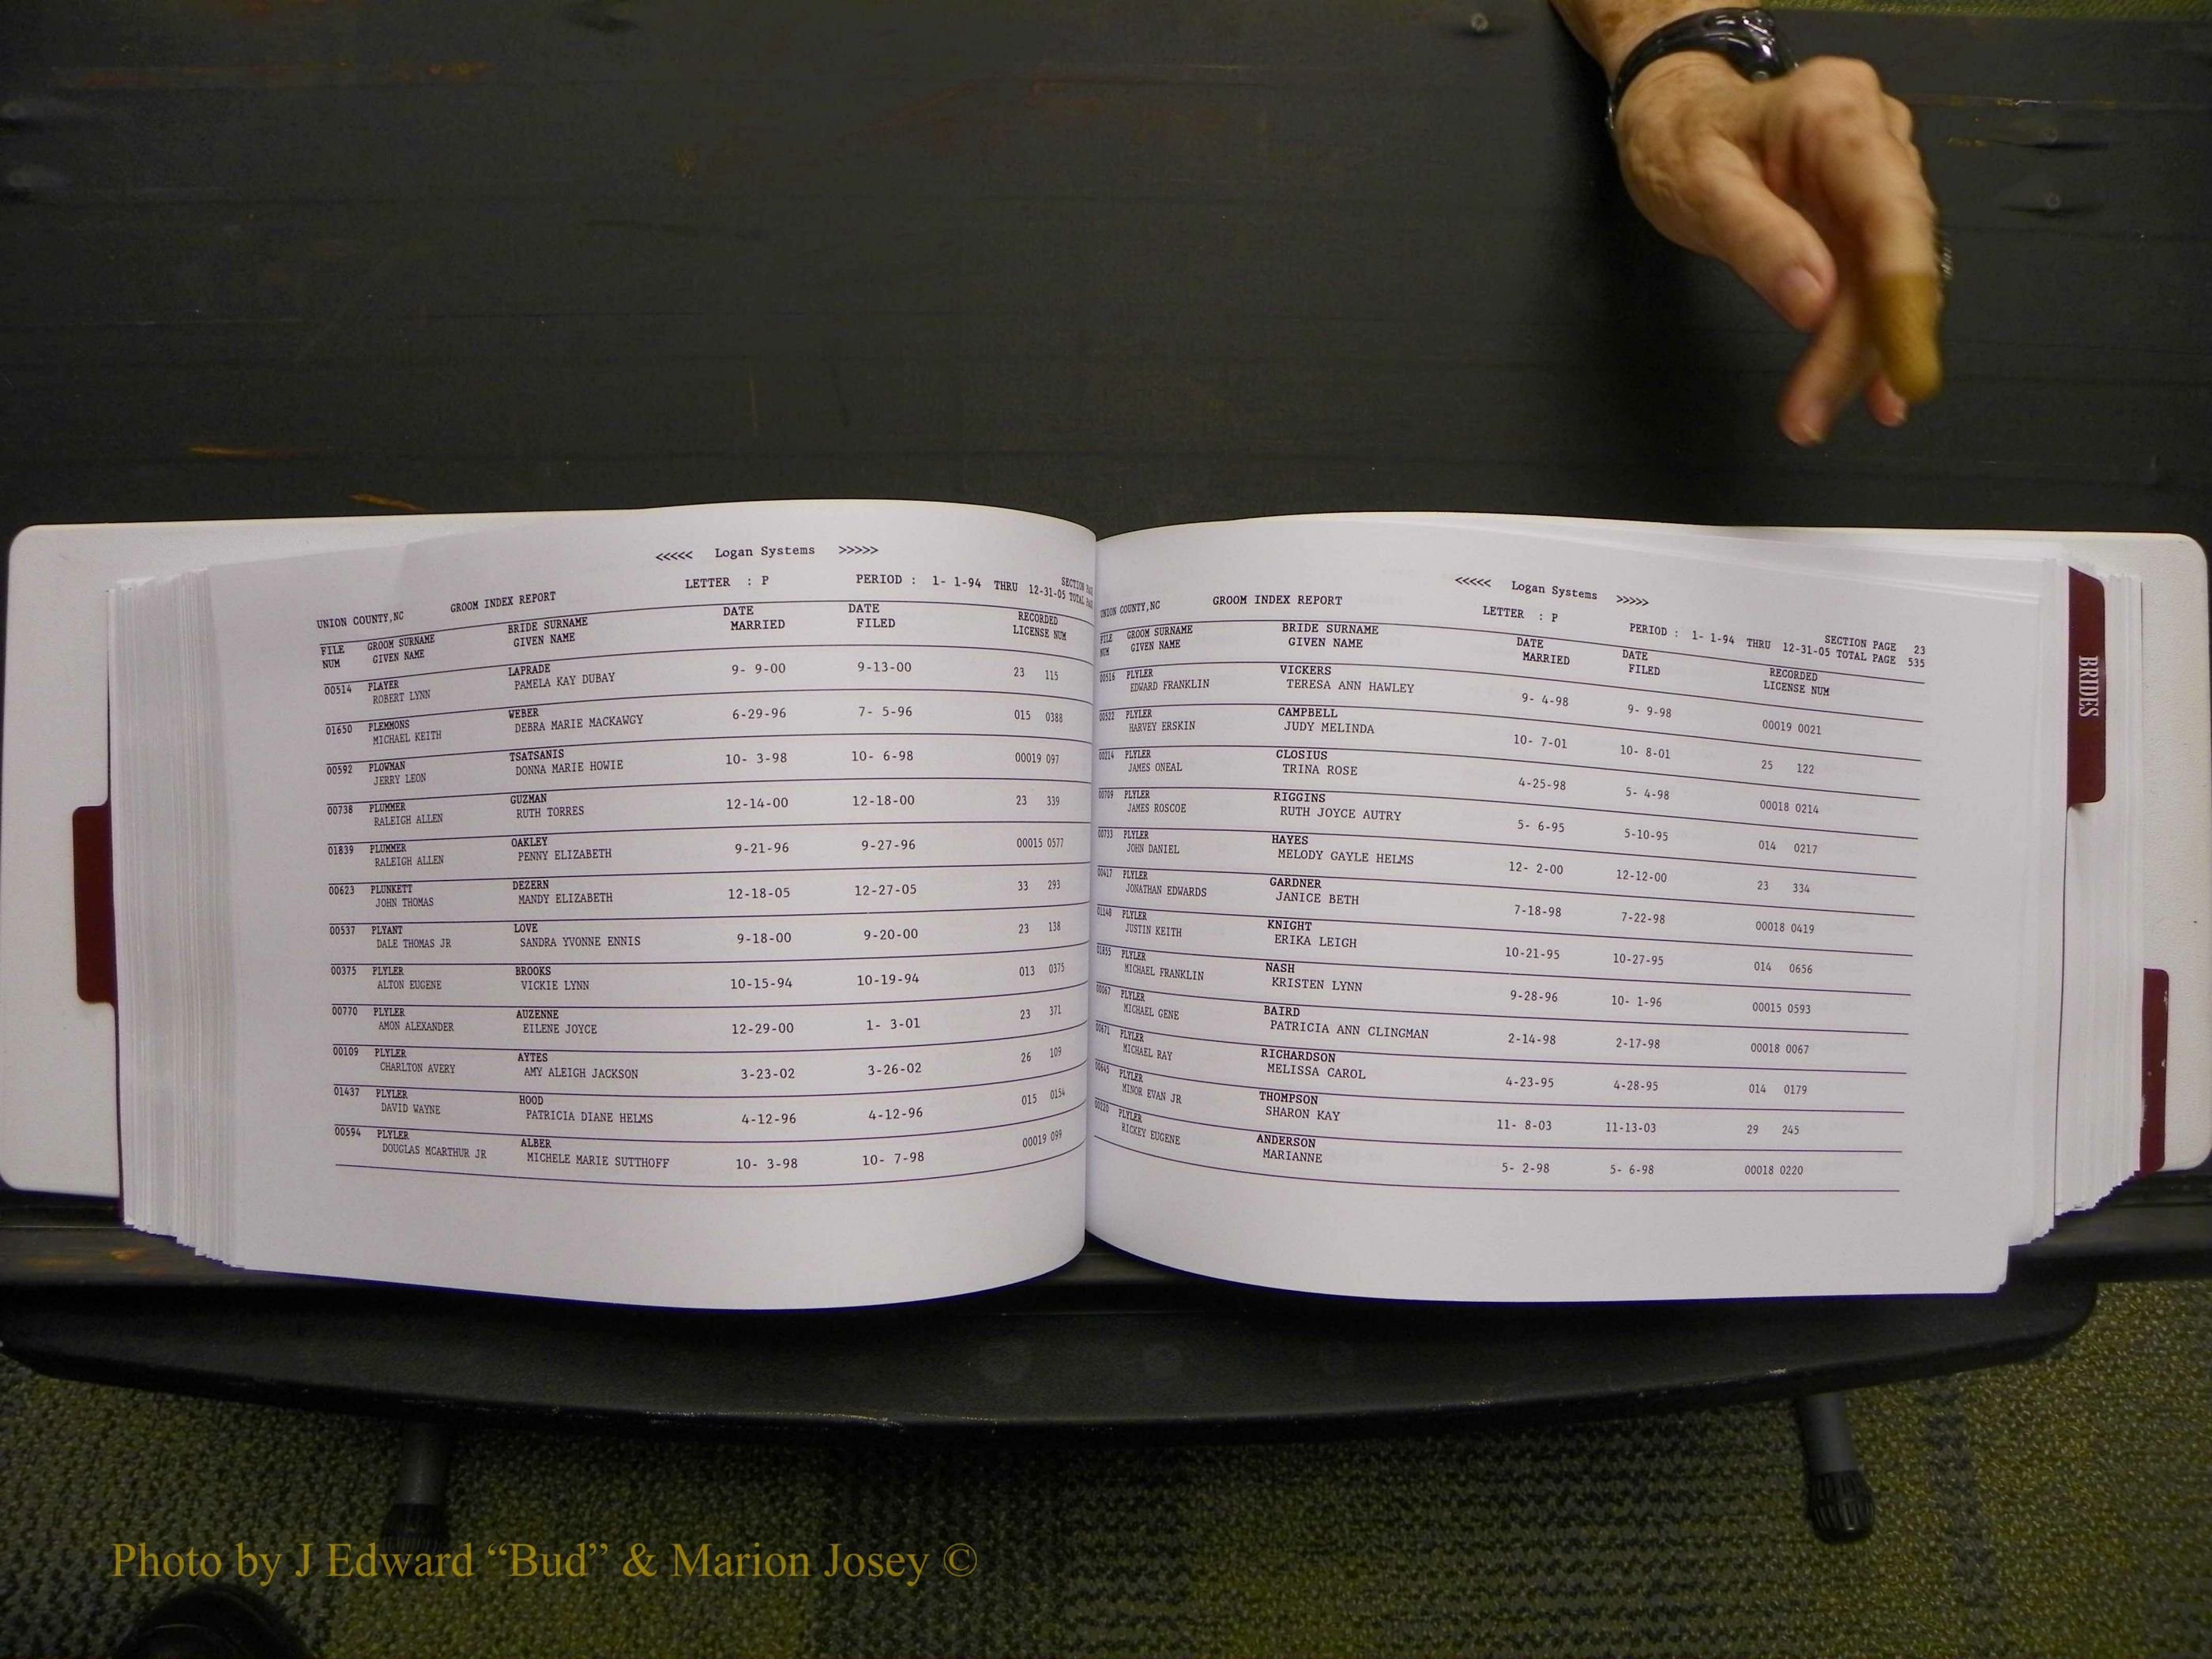 <<<<< Logan Systems >>>>>
LETTER : P PERIOD : 1- 1-94 THRU 12-31-05 TOTAL
SECTION
UNION COUNTY,NC GROOM INDEX REPORT
FILE GROOM SURNAME BRIDE SURNAME DATE DATE RECORDED
NUM GIVEN NAME GIVEN NAME MARRIED FILED LICENSE NUM
00514 PLAYER LAPRADE 9- 9-00 9-13-00 23 115
ROBERT LYNN PAMELA KAY DUBAY
01650 PLEMMONS WEBER 6-29-96 7- 5-96 015 0388
MICHAEL KEITH DEBRA MARIE MACKAWGY
00592 PLOWMAN TSATSANIS 10- 3-98 10- 6-98 00019 097
JERRY LEON DONNA MARIE HOWIE
00738 PLUMMER GUZMAN 12-14-00 12-18-00 23 339
RALEIGH ALLEN RUTH TORRES
01839 PLUMMER OAKLEY 9-21-96 9-27-96 00015 0577
RALEIGH ALLEN PENNY ELIZABETH
00623 PLUNKETT DEZERN 12-18-05 12-27-05 33 293
JOHN THOMAS MANDY ELIZABETH
00537 PLYANT LOVE 9-18-00 9-20-00 23 138
DALE THOMAS JR SANDRA YVONNE ENNIS
00375 PLYLER BROOKS 10-15-94 10-19-94 013 0375
ALTON EUGENE VICKIE LYNN
00770 PLYLER AUZENNE 12-29-00 1- 3-01 23 371
AMON ALEXANDER EILENE JOYCE
00109 PLYLER AYTES 3-23-02 3-26-02 26 109
CHARLTON AVERY AMY ALEIGH JACKSON
01437 PLYLER HOOD 4-12-96 4-12-96 015 0154
DAVID WAYNE PATRICIA DIANE HELMS
00594 PLYLER ALBER 10- 3-98 10- 7-98 00019 099
DOUGLAS MCARTHUR JR MICHELE MARIE SUTTHOFF
<<<<< Logan Systems >>>>>
UNION COUNTY,NC GROOM INDEX REPORT LETTER : P
PERIOD : 1- 1-94 THRU 12-31-05 TOTAL PAGE 535
SECTION PAGE 23
FILE GROOM SURNAME BRIDE SURNAME DATE DATE RECORDED
NUM GIVEN NAME GIVEN NAME MARRIED FILED LICENSE NUM
00516 PLYLER VICKERS 9- 4-98 9- 9-98 00019 0021
EDWARD FRANKLIN TERESA ANN HAWLEY
00522 PLYLER CAMPBELL 10- 7-01 10- 8-01 25 122
HARVEY ERSKIN JUDY MELINDA
00214 PLYLER CLOSIUS 4-25-98 5- 4-98 00018 0214
JAMES ONEAL TRINA ROSE
00709 PLYLER RIGGINS 5- 6-95 5-10-95 014 0217
JAMES ROSCOE RUTH JOYCE AUTRY
00733 PLYLER HAYES 12- 2-00 12-12-00 23 334
JOHN DANIEL MELODY GAYLE HELMS
00417 PLYLER GARDNER 7-18-98 7-22-98 00018 0419
JONATHAN EDWARDS JANICE BETH
01148 PLYLER KNIGHT 10-21-95 10-27-95 014 0656
JUSTIN KEITH ERIKA LEIGH
01855 PLYLER NASH 9-28-96 10- 1-96 00015 0593
MICHAEL FRANKLIN KRISTEN LYNN
00067 PLYLER BAIRD 2-14-98 2-17-98 00018 0067
MICHAEL GENE PATRICIA ANN CLINGMAN
00671 PLYLER RICHARDSON 4-23-95 4-28-95 014 0179
MICHAEL RAY MELISSA CAROL
00645 PLYLER THOMPSON 11- 8-03 11-13-03 29 245
MINOR EVAN JR SHARON KAY
00220 PLYLER ANDERSON 5- 2-98 5- 6-98 00018 0220
RICKEY EUGENE MARIANNE
BRIDES
Photo by J Edward “Bud” & Marion Josey ©